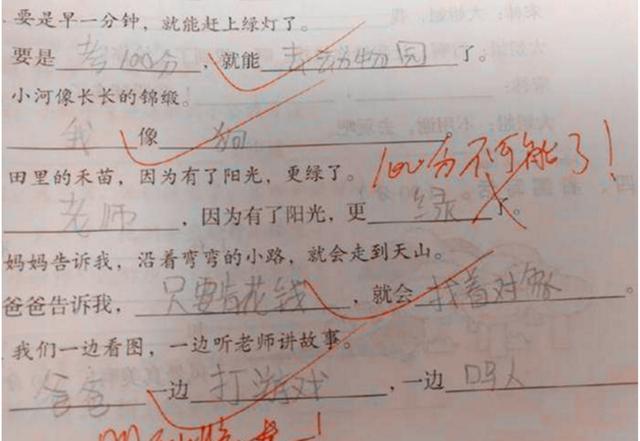 要是早一分钟，就能赶上绿灯了。
要是考100分，就能去动物园了。
小河像长长的锦缎。
我像狗。
100分不可能了！
田里的禾苗，因为有了阳光，更绿了。
老师，因为有了阳光，更绿了。
妈妈告诉我，沿着弯弯的小路，就会走到天山。
爸爸告诉我，只要肯花钱，就会找着对象。
我们一边看图，一边听老师讲故事。
爸爸一边打游戏，一边骂人